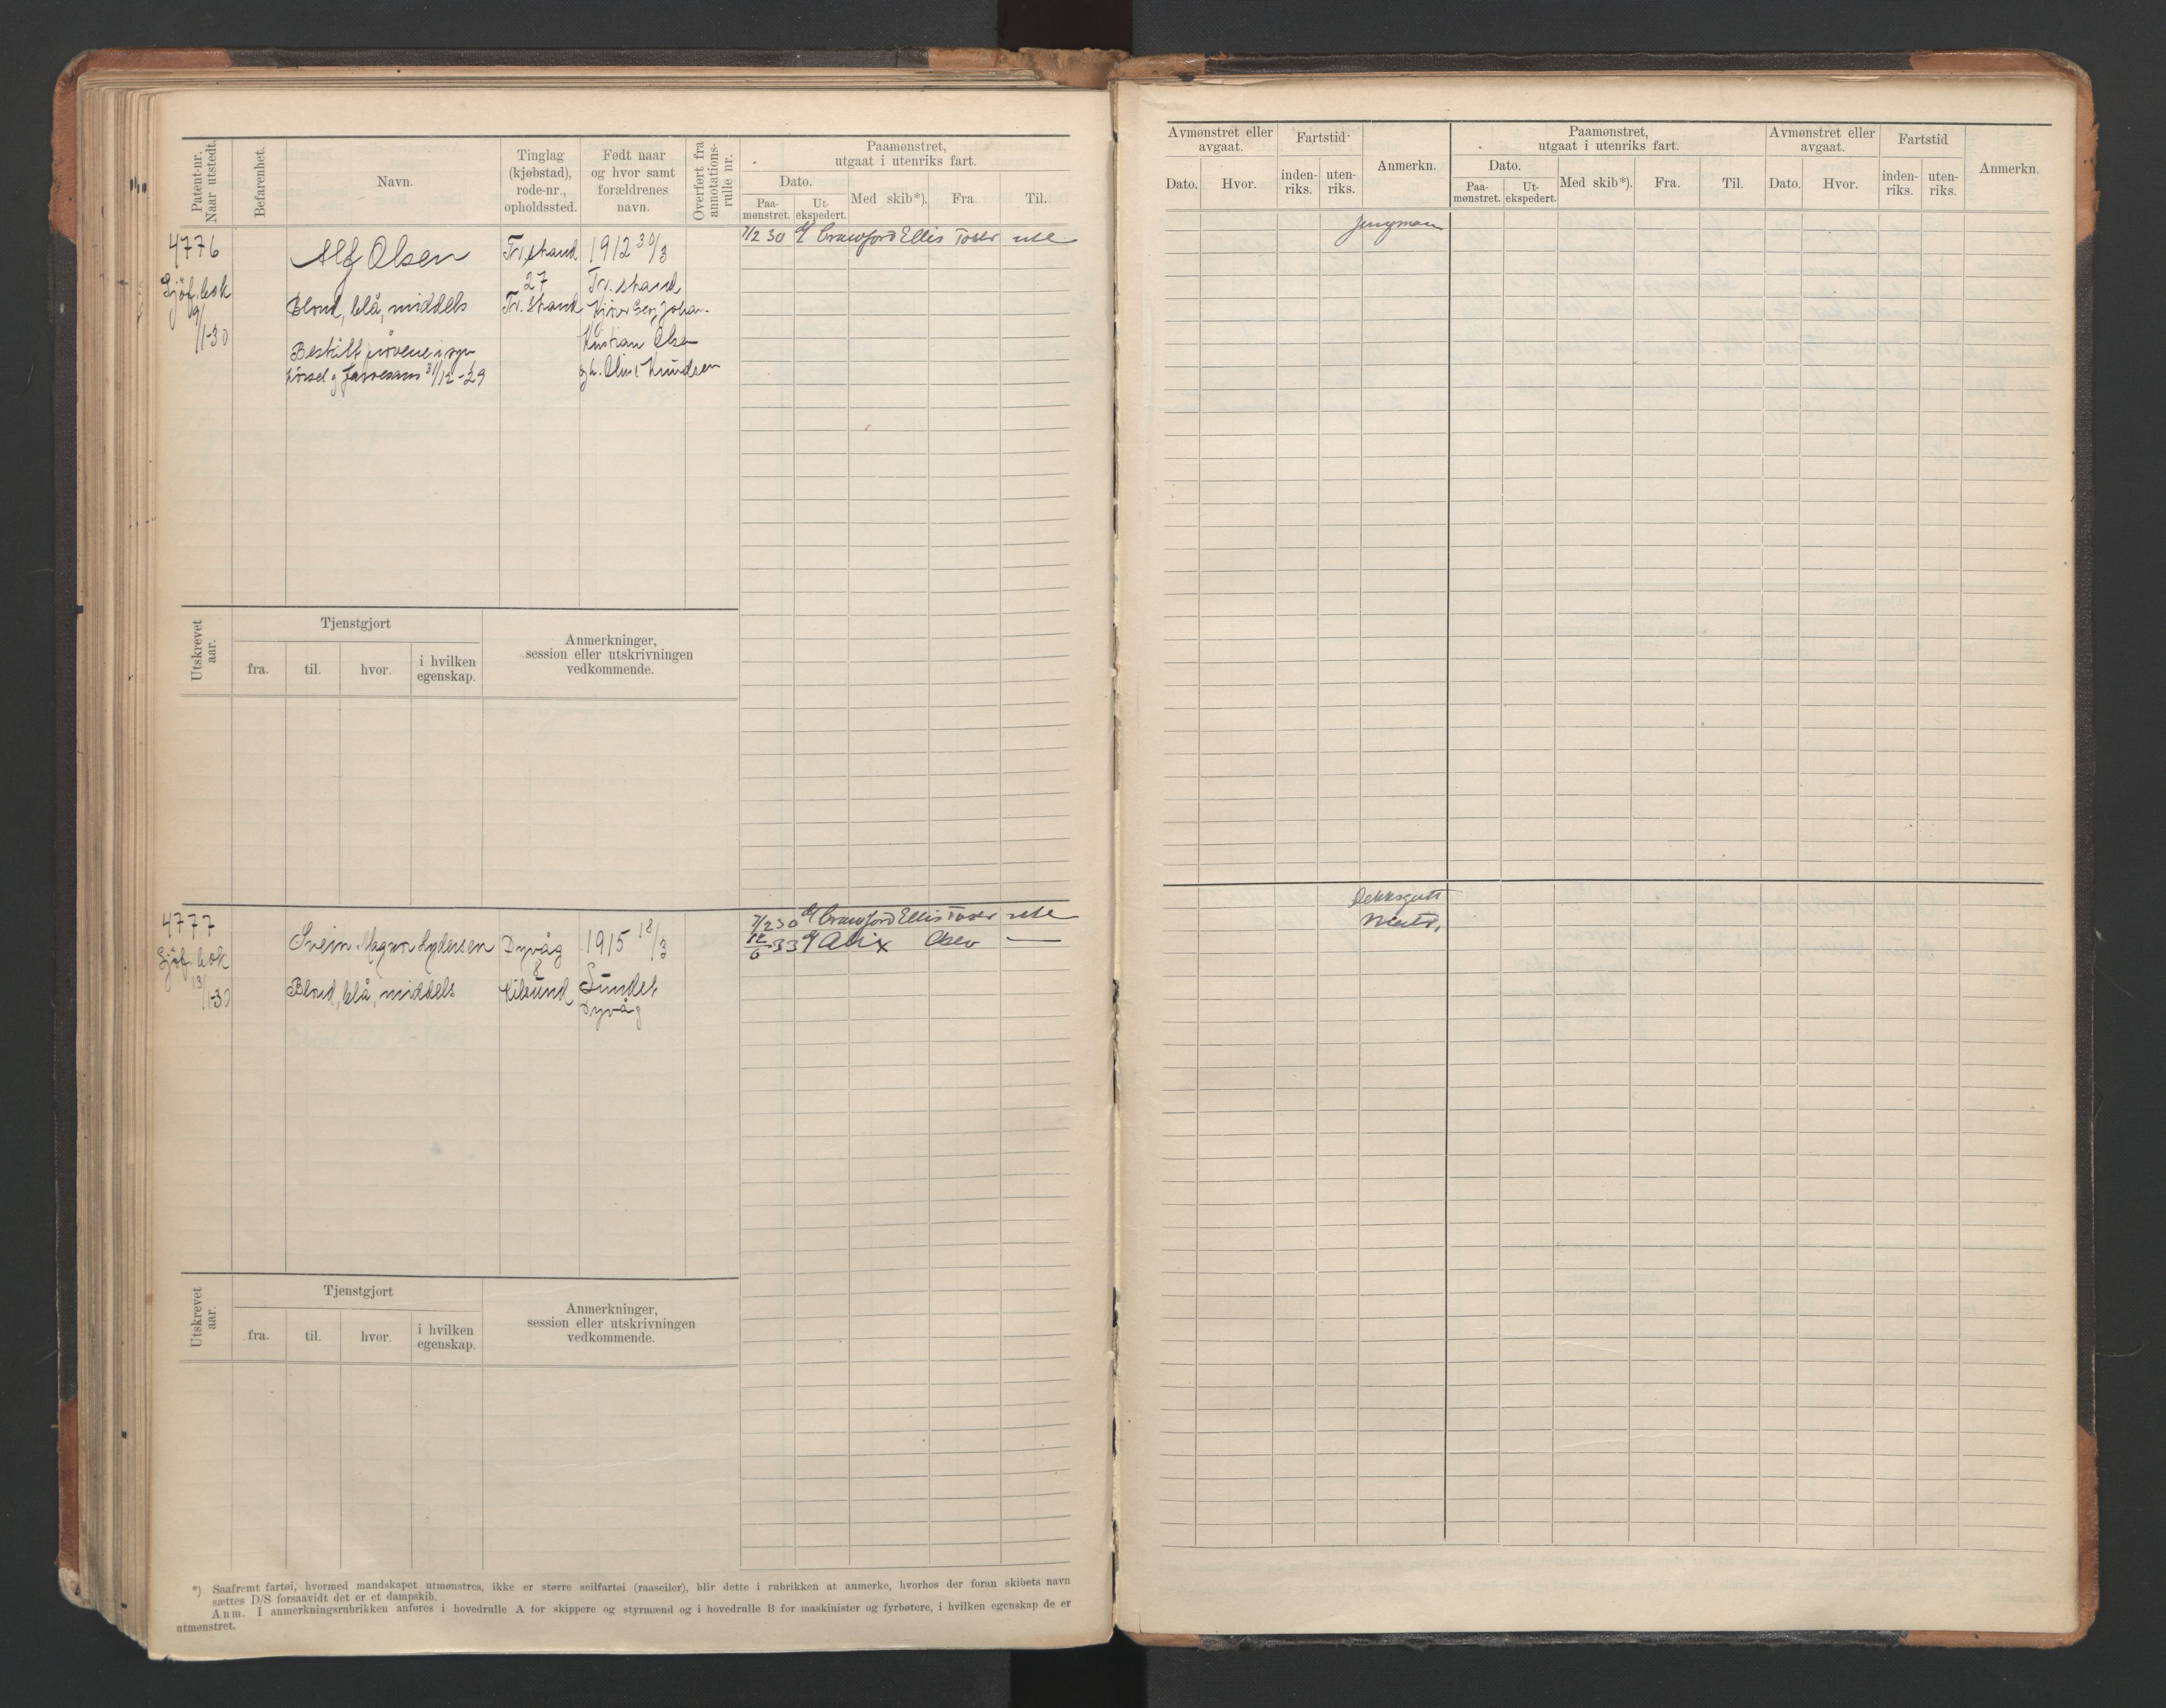 Patent-nr.
Naar utstedt.
Befarenhet.
Navn.
Tinglag
(kjøbstad),
rode-nr.,
opholdssted.
Født naar
og hvor samt
forældrenes
navn.
Overført fra
annotations-
rulle nr.
Paamønstret,
utgaat i utenriks fart.
Dato.
Paa-
mønstret.
Ut-
ekspedert.
Med skib*).
Fra.
Til.
4776
Sjøf.bok
9/1-30
Alf Olsen
Blond, blå, middels
Bestått prøvene i syn
hørsel og farvesans 31/12-29
Tv.strand
27
Tv. Strand
1912 30/3
Tv. strand
Johan
Kristian Olsen
og h. Knudsen
7/2 30 Crawford Ellis Tøser ute
Utskrevet
aar.
Tjenstgjort
fra.
til.
hvor.
i hvilken
egenskap.
Anmerkninger,
session eller utskrivningen
vedkommende.
4777
Sjøf.bok
13/1-30
Svein Magnus Lydersen
Blond, blå, middels
Dyvåg
8
Kilsund
1915 18/3
Sundet
Dyvåg
7/2 30 Crawford Ellis Tøser ute
12/6 33 Alix Oslo —
Utskrevet
aar.
Tjenstgjort
fra.
til.
hvor.
i hvilken
egenskap.
Anmerkninger,
session eller utskrivningen
vedkommende.
*) Saafremt fartøi, hvormed mandskapet utmønstres, ikke er større seilfartøi (raaseiler), blir dette i rubrikken at anmerke, hvorhos der foran skibets navn
sættes D/S forsaavidt det er et dampskib.
Anm. I anmerkningsrubrikken anføres i hovedrulle A for skippere og styrmænd og i hovedrulle B for maskinister og fyrbøtere, i hvilken egenskap de er
utmønstret.
Avmønstret eller
avgaat.
Dato.
Hvor.
Fartstid
inden-
riks.
uten-
riks.
Anmerkn.
Paamønstret,
utgaat i utenriks fart.
Dato.
Paa-
mønstret.
Ut-
ekspedert.
Med skib*).
Fra.
Til.
Avmønstret eller
avgaat.
Dato.
Hvor.
Fartstid
inden-
riks.
uten-
riks.
Anmerkn.
Jungmann
Dekksgutt
Matr.